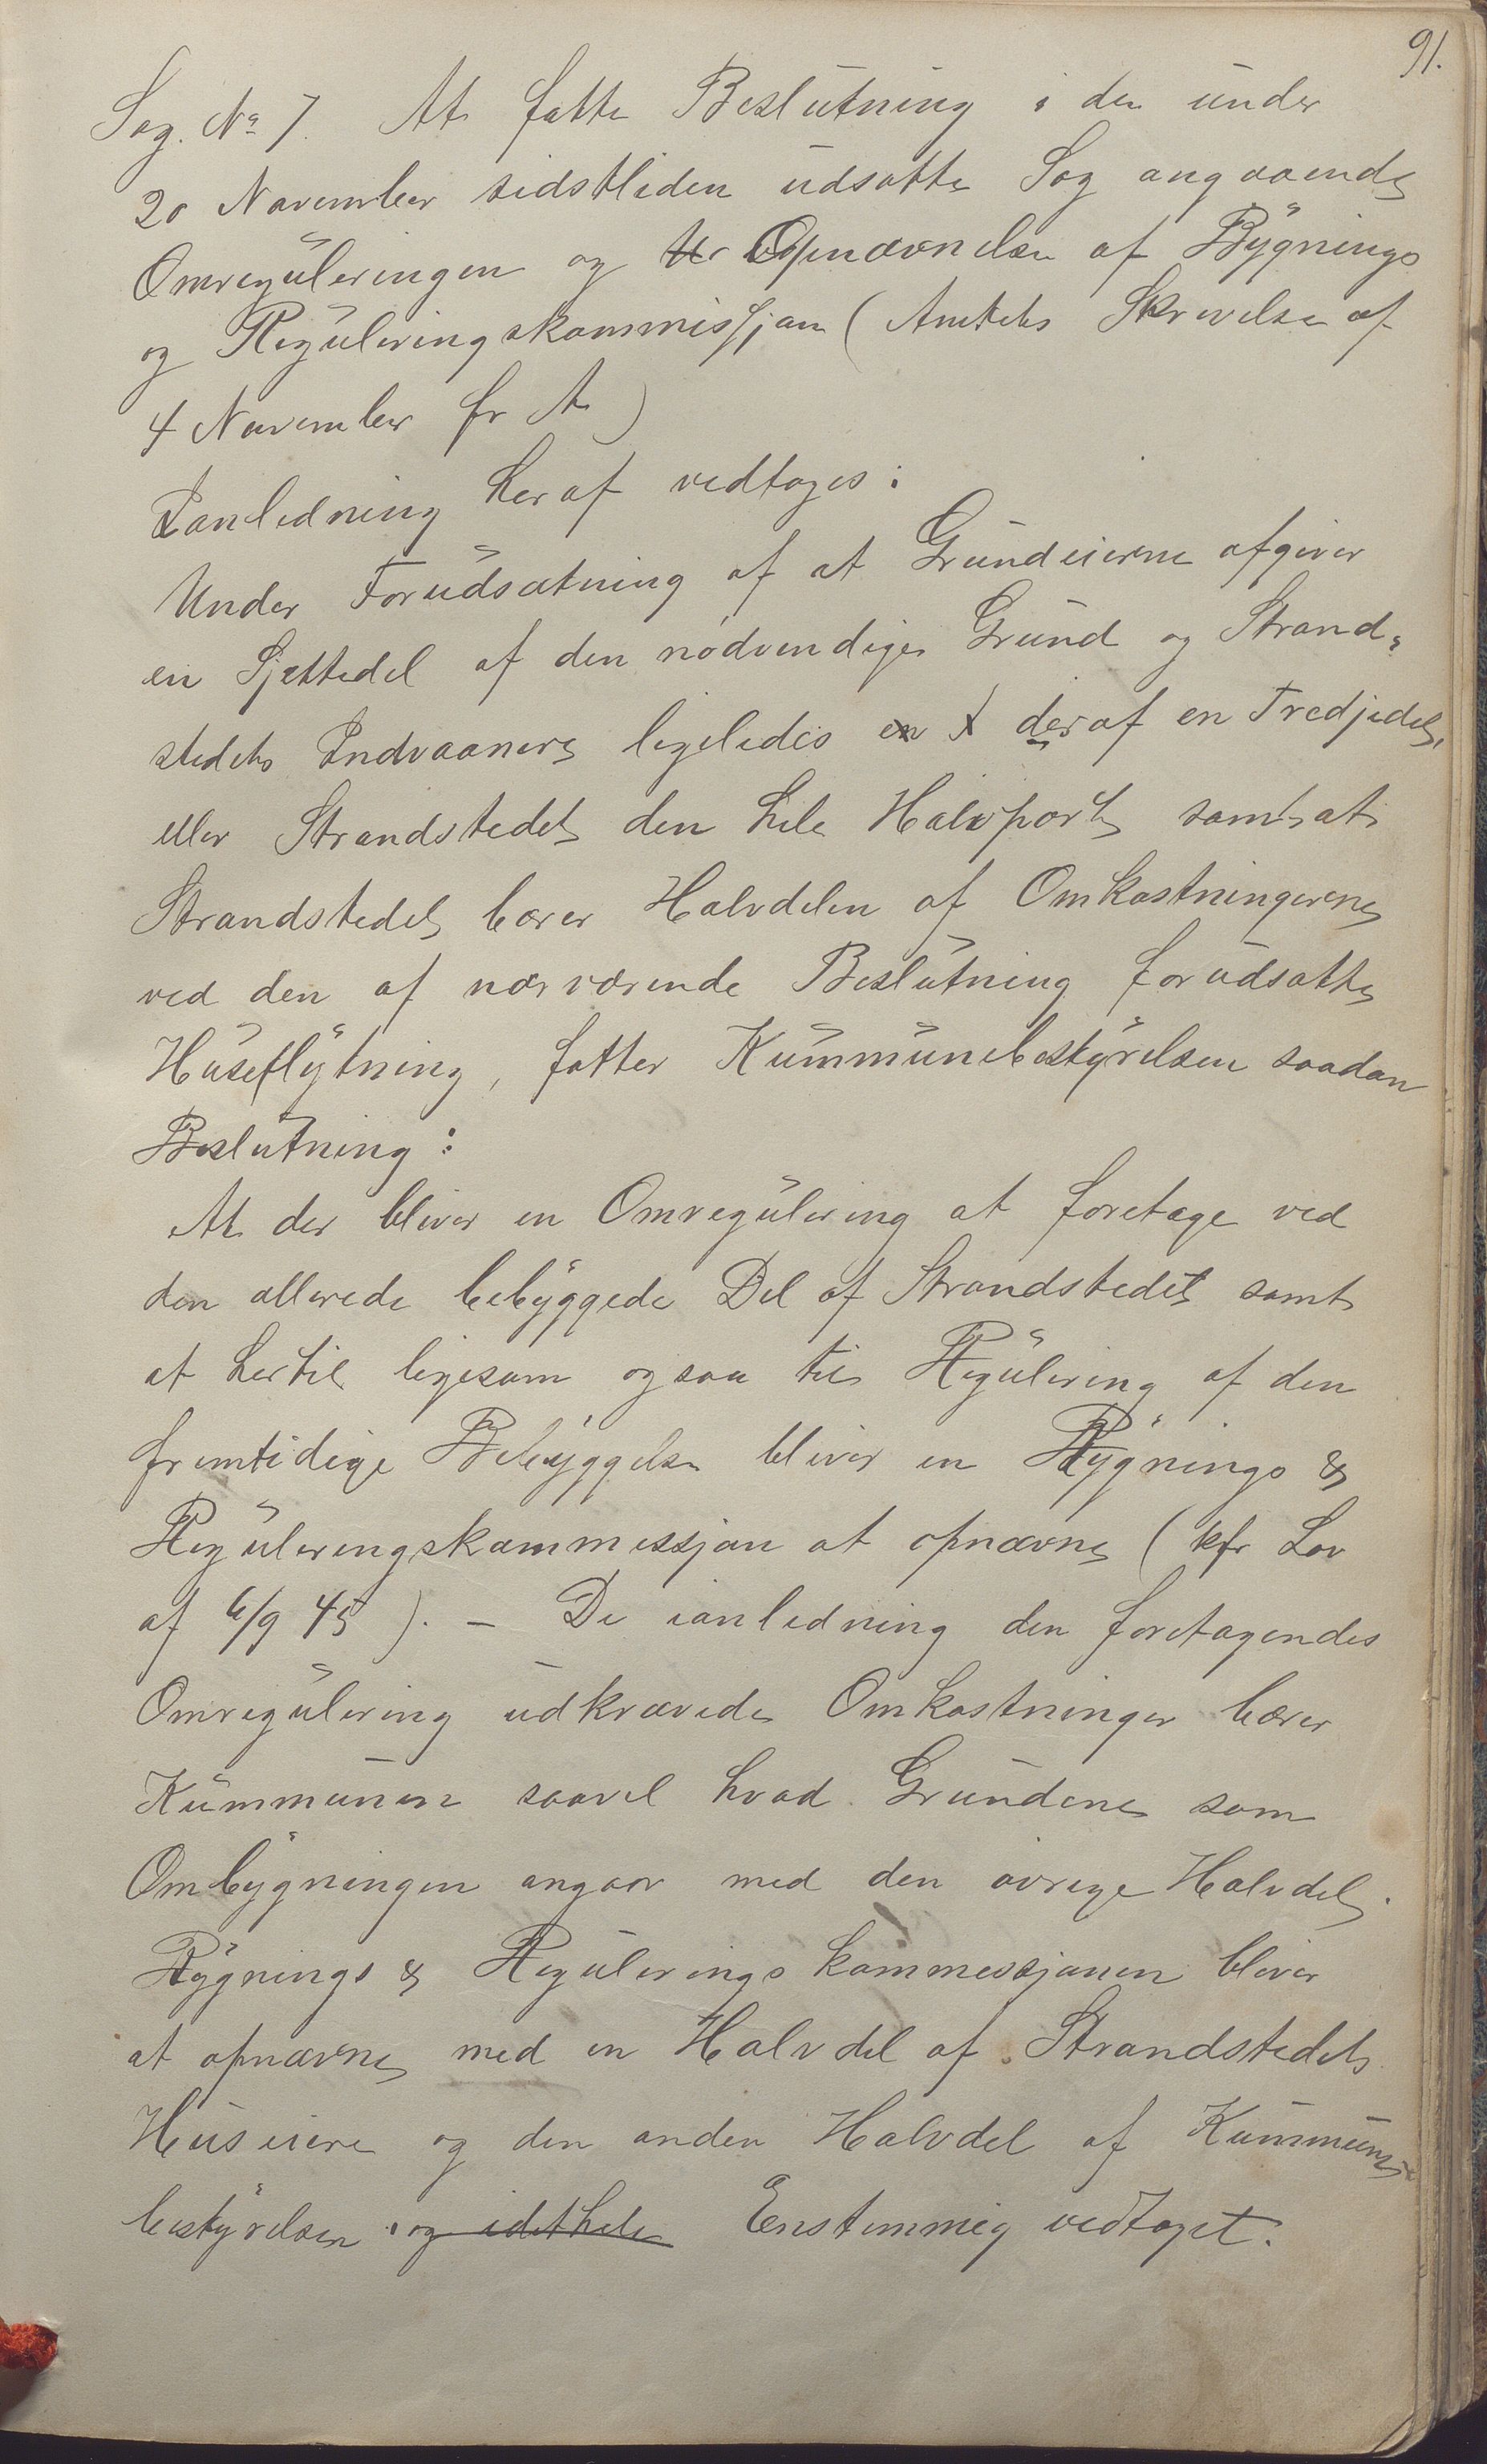 91.
Sag. No 7. At fatte Beslutning i den under
20 November sidstleden udsatte Sag angaaende
Omreguleringen og Opnævnelse af Bygnings
og Reguleringskommissjon (Amtets Skrivelse af
4 November fr A)
Ianledning heraf vedtoges:
Under Forudsætning af at Grundeierne afgiver
en Sjettedel af den nødvendige Grund og Strand-
stedets Indvaanere ligeledes deraf en Tredjedel,
eller Strandstedet den hele Halvpart samt at
Strandstedet bærer Halvdelen af Omkostningerne
ved den af nærværende Beslutning forudsatte
Huseflytning, fatter Kummunebestyrelsen saadan
Beslutning:
At der bliver en Omregulering at foretage ved
den allerede bebyggede Del af Strandstedet samt
at hertil ligesom ogsaa til Regulering af den
fremtidige Bebyggelse bliver en Bygnings &
Reguleringskommissjon at opnævne (kfr Lov
af 6/9 45). - De ianledning den foretagendes
Omregulering udkrævede Omkostninger bærer
Kummunen saavel hvad Grundene som
Ombygningen angaar med den øvrige Halvdel.
Bygnings & Regulerings kommissjonen bliver
at opnævne med en Halvdel af Strandstedets
Huseiere og den anden Halvdel af Kummune
bestyrelsen og idethele Enstemmig vedtaget.